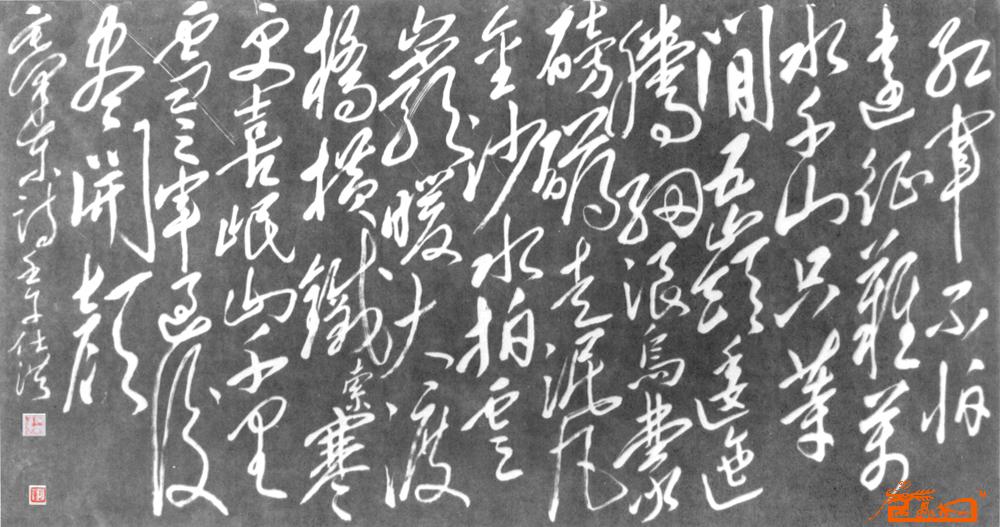 紅軍不怕
遠征難萬
水千山只等
閒五嶺逶迤
騰細浪烏蒙
磅礴走泥丸
金沙水拍雲
巖暖大渡
橋橫鐵索寒
更喜岷山千里
雪三軍過後
盡開顏
毛澤東詩壬午仕